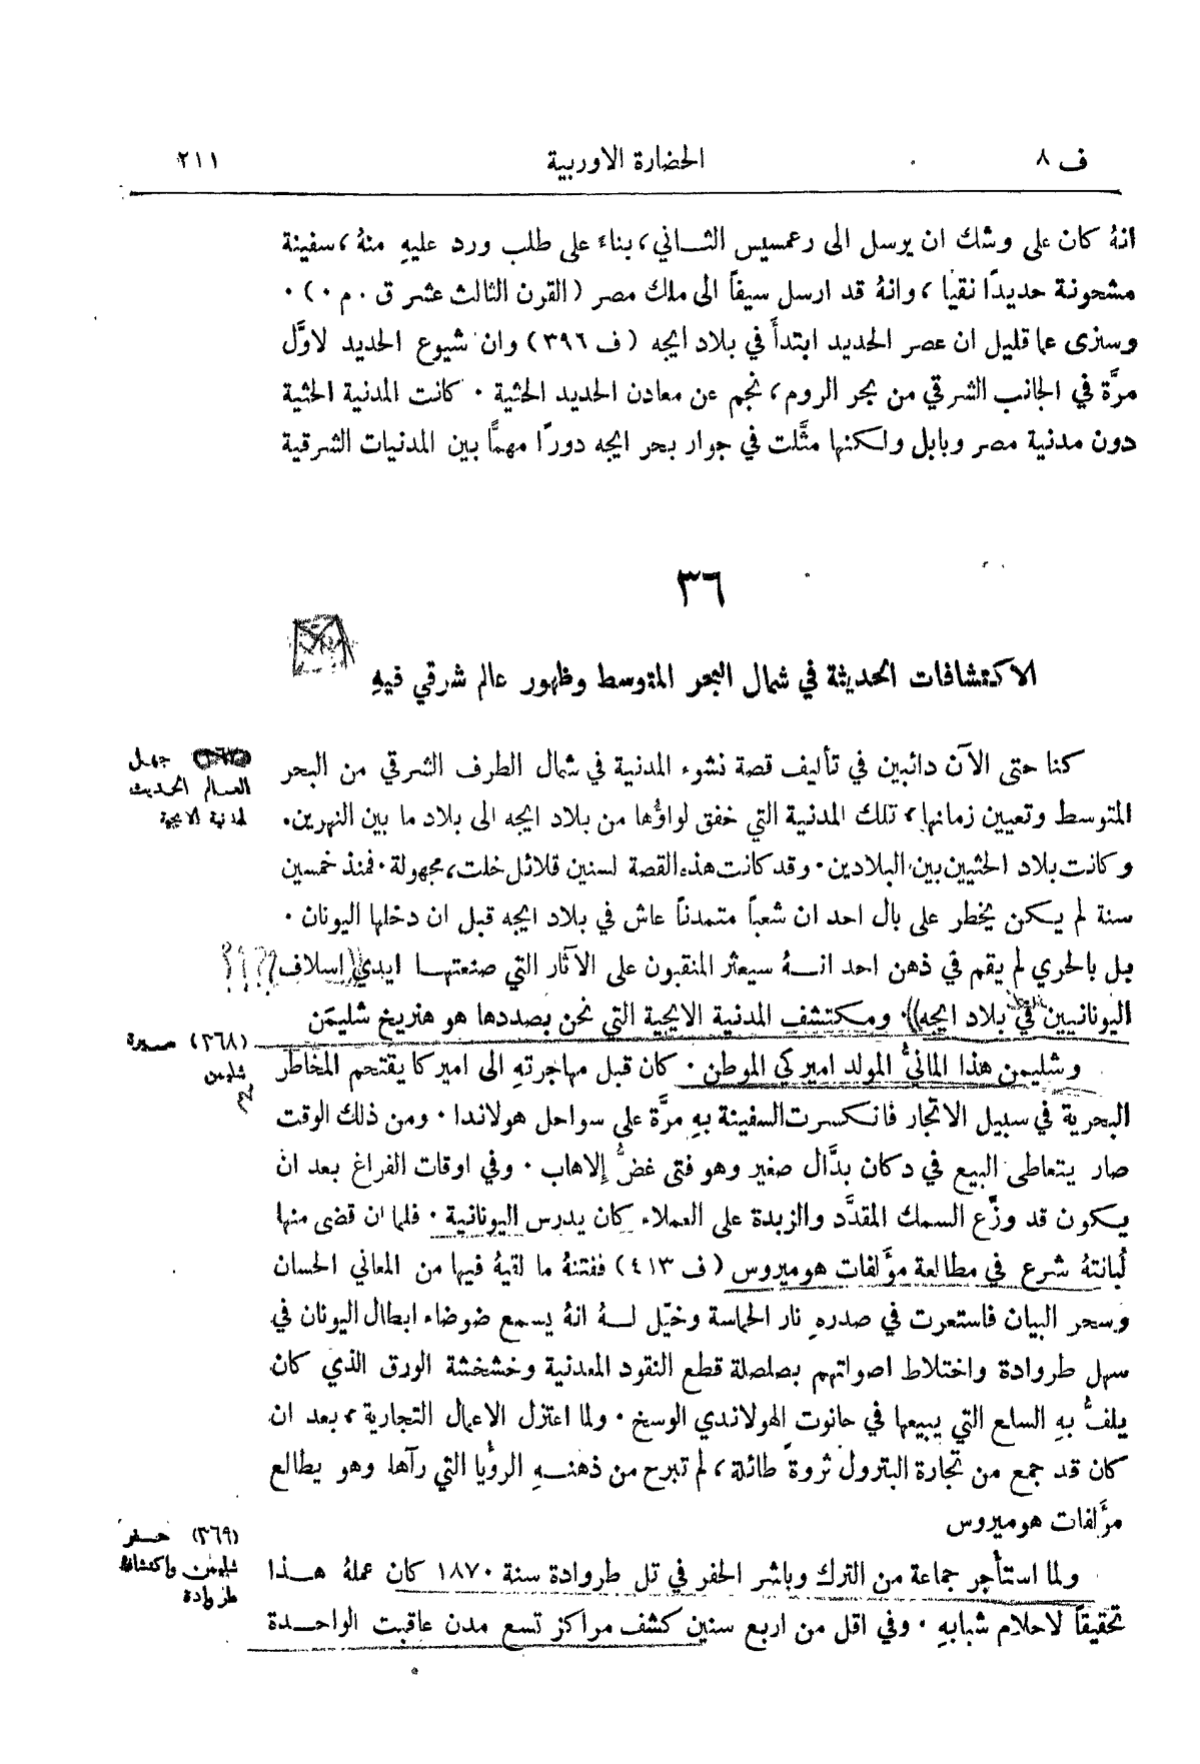 ف ٨
الحضارة الاوربية
٢١١
انهُ كان على وشك ان يرسل الى رعمسيس الثاني، بناءً على طلب ورد عليهِ منهُ، سفينة
مشحونة حديدًا نقيا، وانهُ قد ارسل سيفاً الى ملك مصر (القرن الثالث عشر ق . م .) .
وسنرى عما قليل ان عصر الحديد ابتدأَ في بلاد ايجه (ف ٣٩٦) وان شيوع الحديد لاوَّل
مرَّة في الجانب الشرقي من بحر الروم، نجم عن معادن الحديد الحثية . كانت المدنية الحثية
دون مدنية مصر وبابل ولكنها مثَّلت في جوار بحر ايجه دورًا مهمًّا بين المدنيات الشرقية
٣٦
الاكتشافات الحديثة في شمال البحر المتوسط وظهور عالم شرقي فيهِ
جهل
العالم الحديث
لمدنية الايجية
كنا حتى الآن دائبين في تأليف قصة نشوء المدنية في شمال الطرف الشرقي من البحر
المتوسط وتعيين زمانها، تلك المدنية التي خفق لواؤُها من بلاد ايجه الى بلاد ما بين النهرين.
وكانت بلاد الحثيين بين البلادين . وقد كانت هذه القصة لسنين قلائل خلت، مجهولة . فمنذ خمسين
سنة لم يكن يخطر على بال احد ان شعباً متمدناً عاش في بلاد ايجه قبل ان دخلها اليونان .
بل بالحري لم يقم في ذهن احد انهُ سيعثر المنقبون على الآثار التي صنعتها ايدي (اسلاف ؟؟!؟
اليونانيين في بلاد ايجه)). ومكتشف المدنية الايجية التي نحن بصددها هو هنريخ شليمَن
(٣٦٨) سيرة
شليمن
وشليمن هذا المانيُّ المولد اميركي الموطن . كان قبل مهاجرتهِ الى اميركا يقتحم المخاطر
البحرية في سبيل الاتجار فانكسرت السفينة بهِ مرَّة على سواحل هولاندا . ومن ذلك الوقت
صار يتعاطى البيع في دكان بدَّال صغير وهو فتى غضُّ الاهاب . وفي اوقات الفراغ بعد ان
يكون قد وزَّع السمك المقدَّد والزبدة على العملاء كان يدرس اليونانية . فلما ان قضى منها
لُبانتهُ شرع في مطالعة مؤَلفات هوميروس (ف ٤١٣) ففتنهُ ما لقيهُ فيها من المعاني الحسان
وسحر البيان فاستعرت في صدرهِ نار الحماسة وخيّل لهُ انهُ يسمع ضوضاء ابطال اليونان في
سهل طروادة واختلاط اصواتهم بصلصلة قطع النقود المعدنية وخشخشة الورق الذي كان
يلفُّ بهِ السلع التي يبيعها في حانوت الهولاندي الوسخ . ولما اعتزل الاعمال التجارية، بعد ان
كان قد جمع من تجارة البترول ثروةً طائلة، لم تبرح من ذهنهِ الرؤيا التي رآها وهو يطالع
مؤَلفات هوميروس
(٣٦٩) حفر
شليمن واكتشافهُ
طروادة
ولما استأجر جماعة من الترك وباشر الحفر في تل طروادة سنة ١٨٧٠ كان عملهُ هذا
تحقيقاً لاحلام شبابهِ . وفي اقل من اربع سنين كشف مراكز تسع مدن عاقبت الواحدة